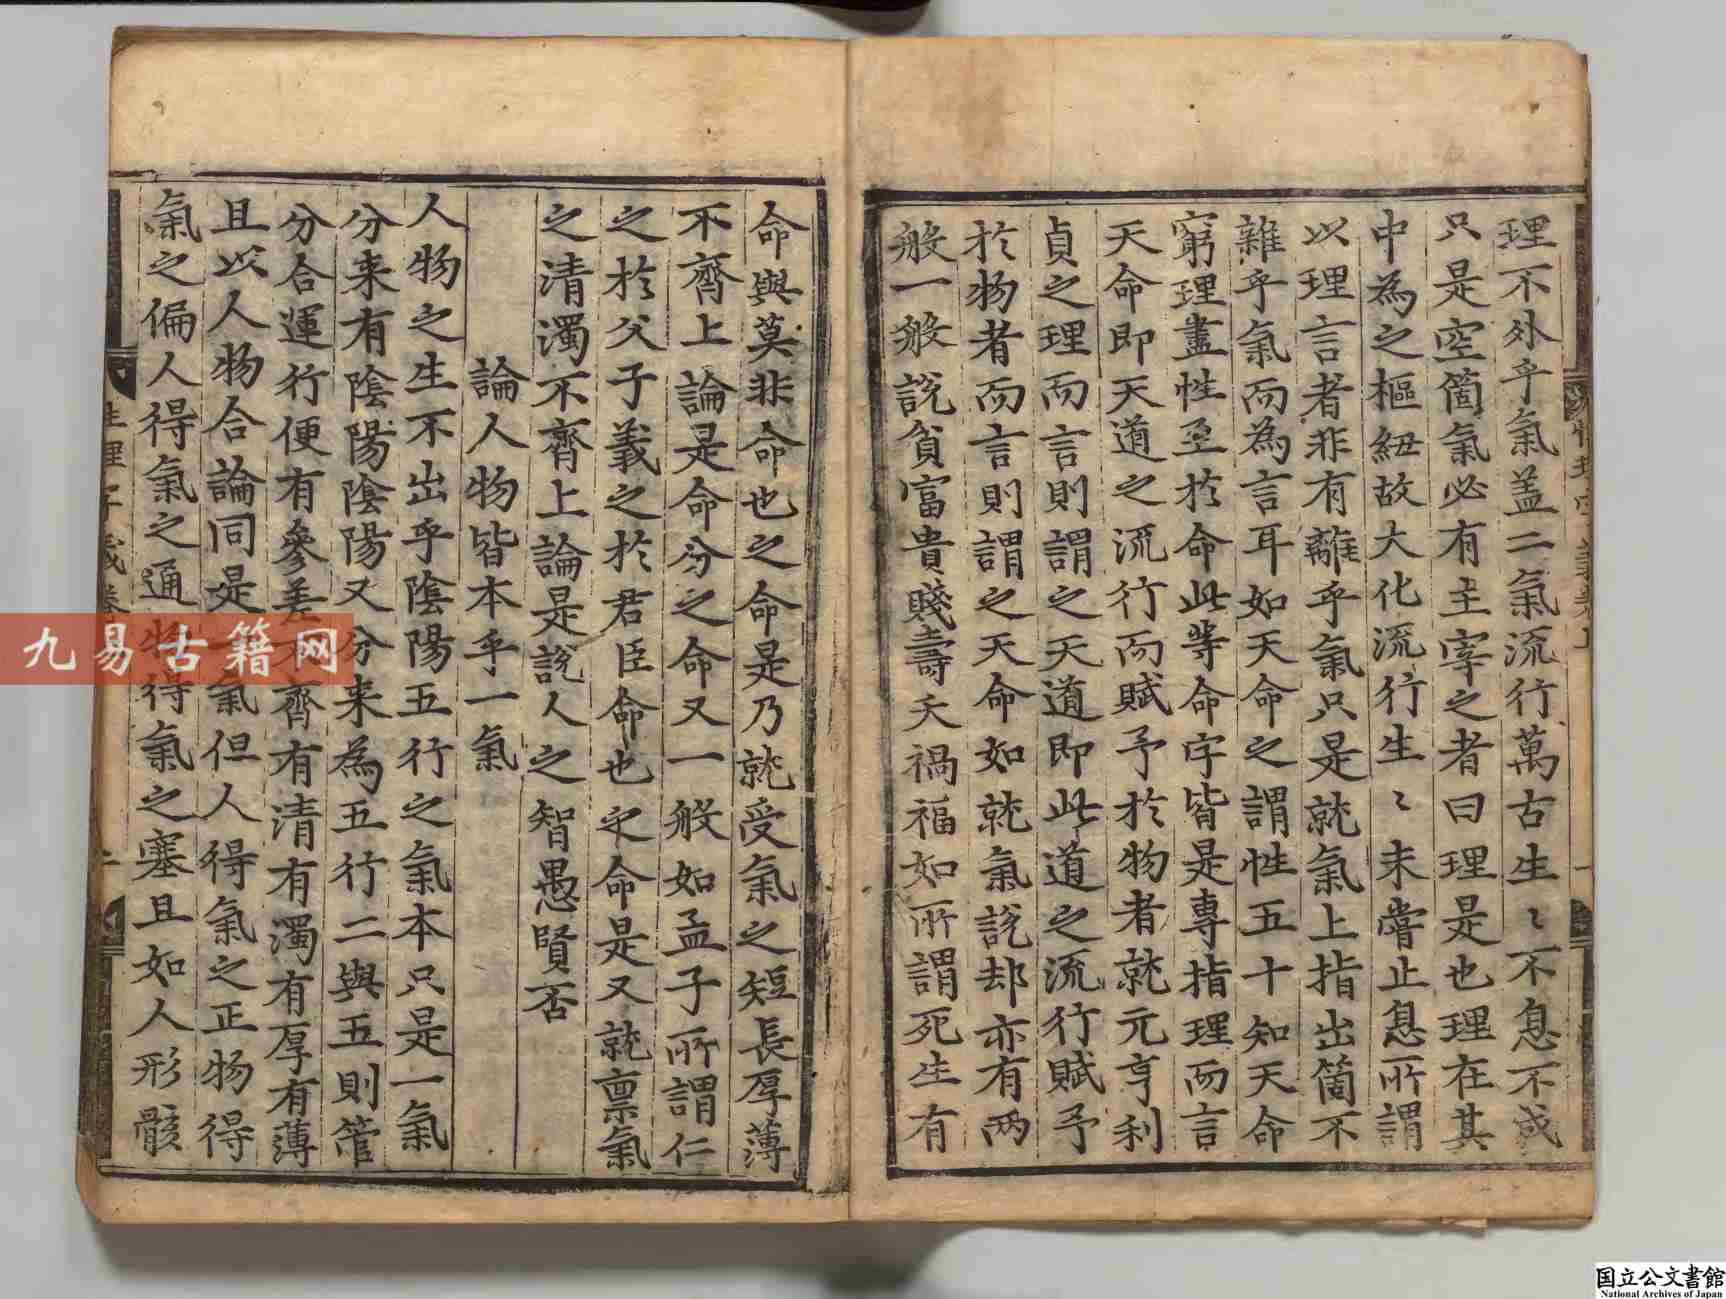 理不外乎氣盖二氣流行萬古生〻不息不成
只是空箇氣必有主宰之者曰理是也理在其
中為之樞紐故大化流行生〻未嘗止息所謂
以理言者非有離乎氣只是就氣上指出箇不
雜乎氣而為言耳如天命之謂性五十知天命
窮理盡性至於命此等命字皆是專指理而言
天命即天道之流行而賦予於物者就元亨利
貞之理而言則謂之天道即此道之流行賦予
於物者而言則謂之天命如就氣說却亦有两
般一般說貧富貴賤壽夭禍福如所謂死生有
命與莫非命也之命是乃就受氣之短長厚薄
不齊上論是命分之命又一般如孟子所謂仁
之於父子義之於君臣命也之命是又就禀氣
之清濁不齊上論是說人之智愚賢否
論人物皆本乎一氣
人物之生不出乎陰陽五行之氣本只是一氣
分来有陰陽陰陽又分来為五行二與五則管
分合運行便有參差不齊有清有濁有厚有薄
且以人物合論同是一氣但人得氣之正物得
氣之偏人得氣之通物得氣之塞且如人形骸
性理字義卷
九易古籍网
国立公文書館
National Archives of Japan